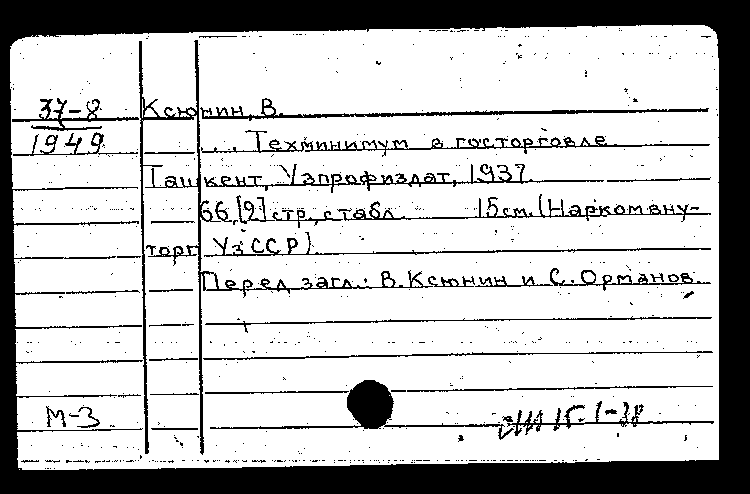 37-8
1949
Ксюнин, В.
... Техминимум в госторговле.
Ташкент, Узпрофиздат, 1937.
66,[2] стр., с табл. 15 см. (Наркомвну-
торг УзССР).
Перед загл.: В. Ксюнин и С. Орманов.
М-3
15-1-38